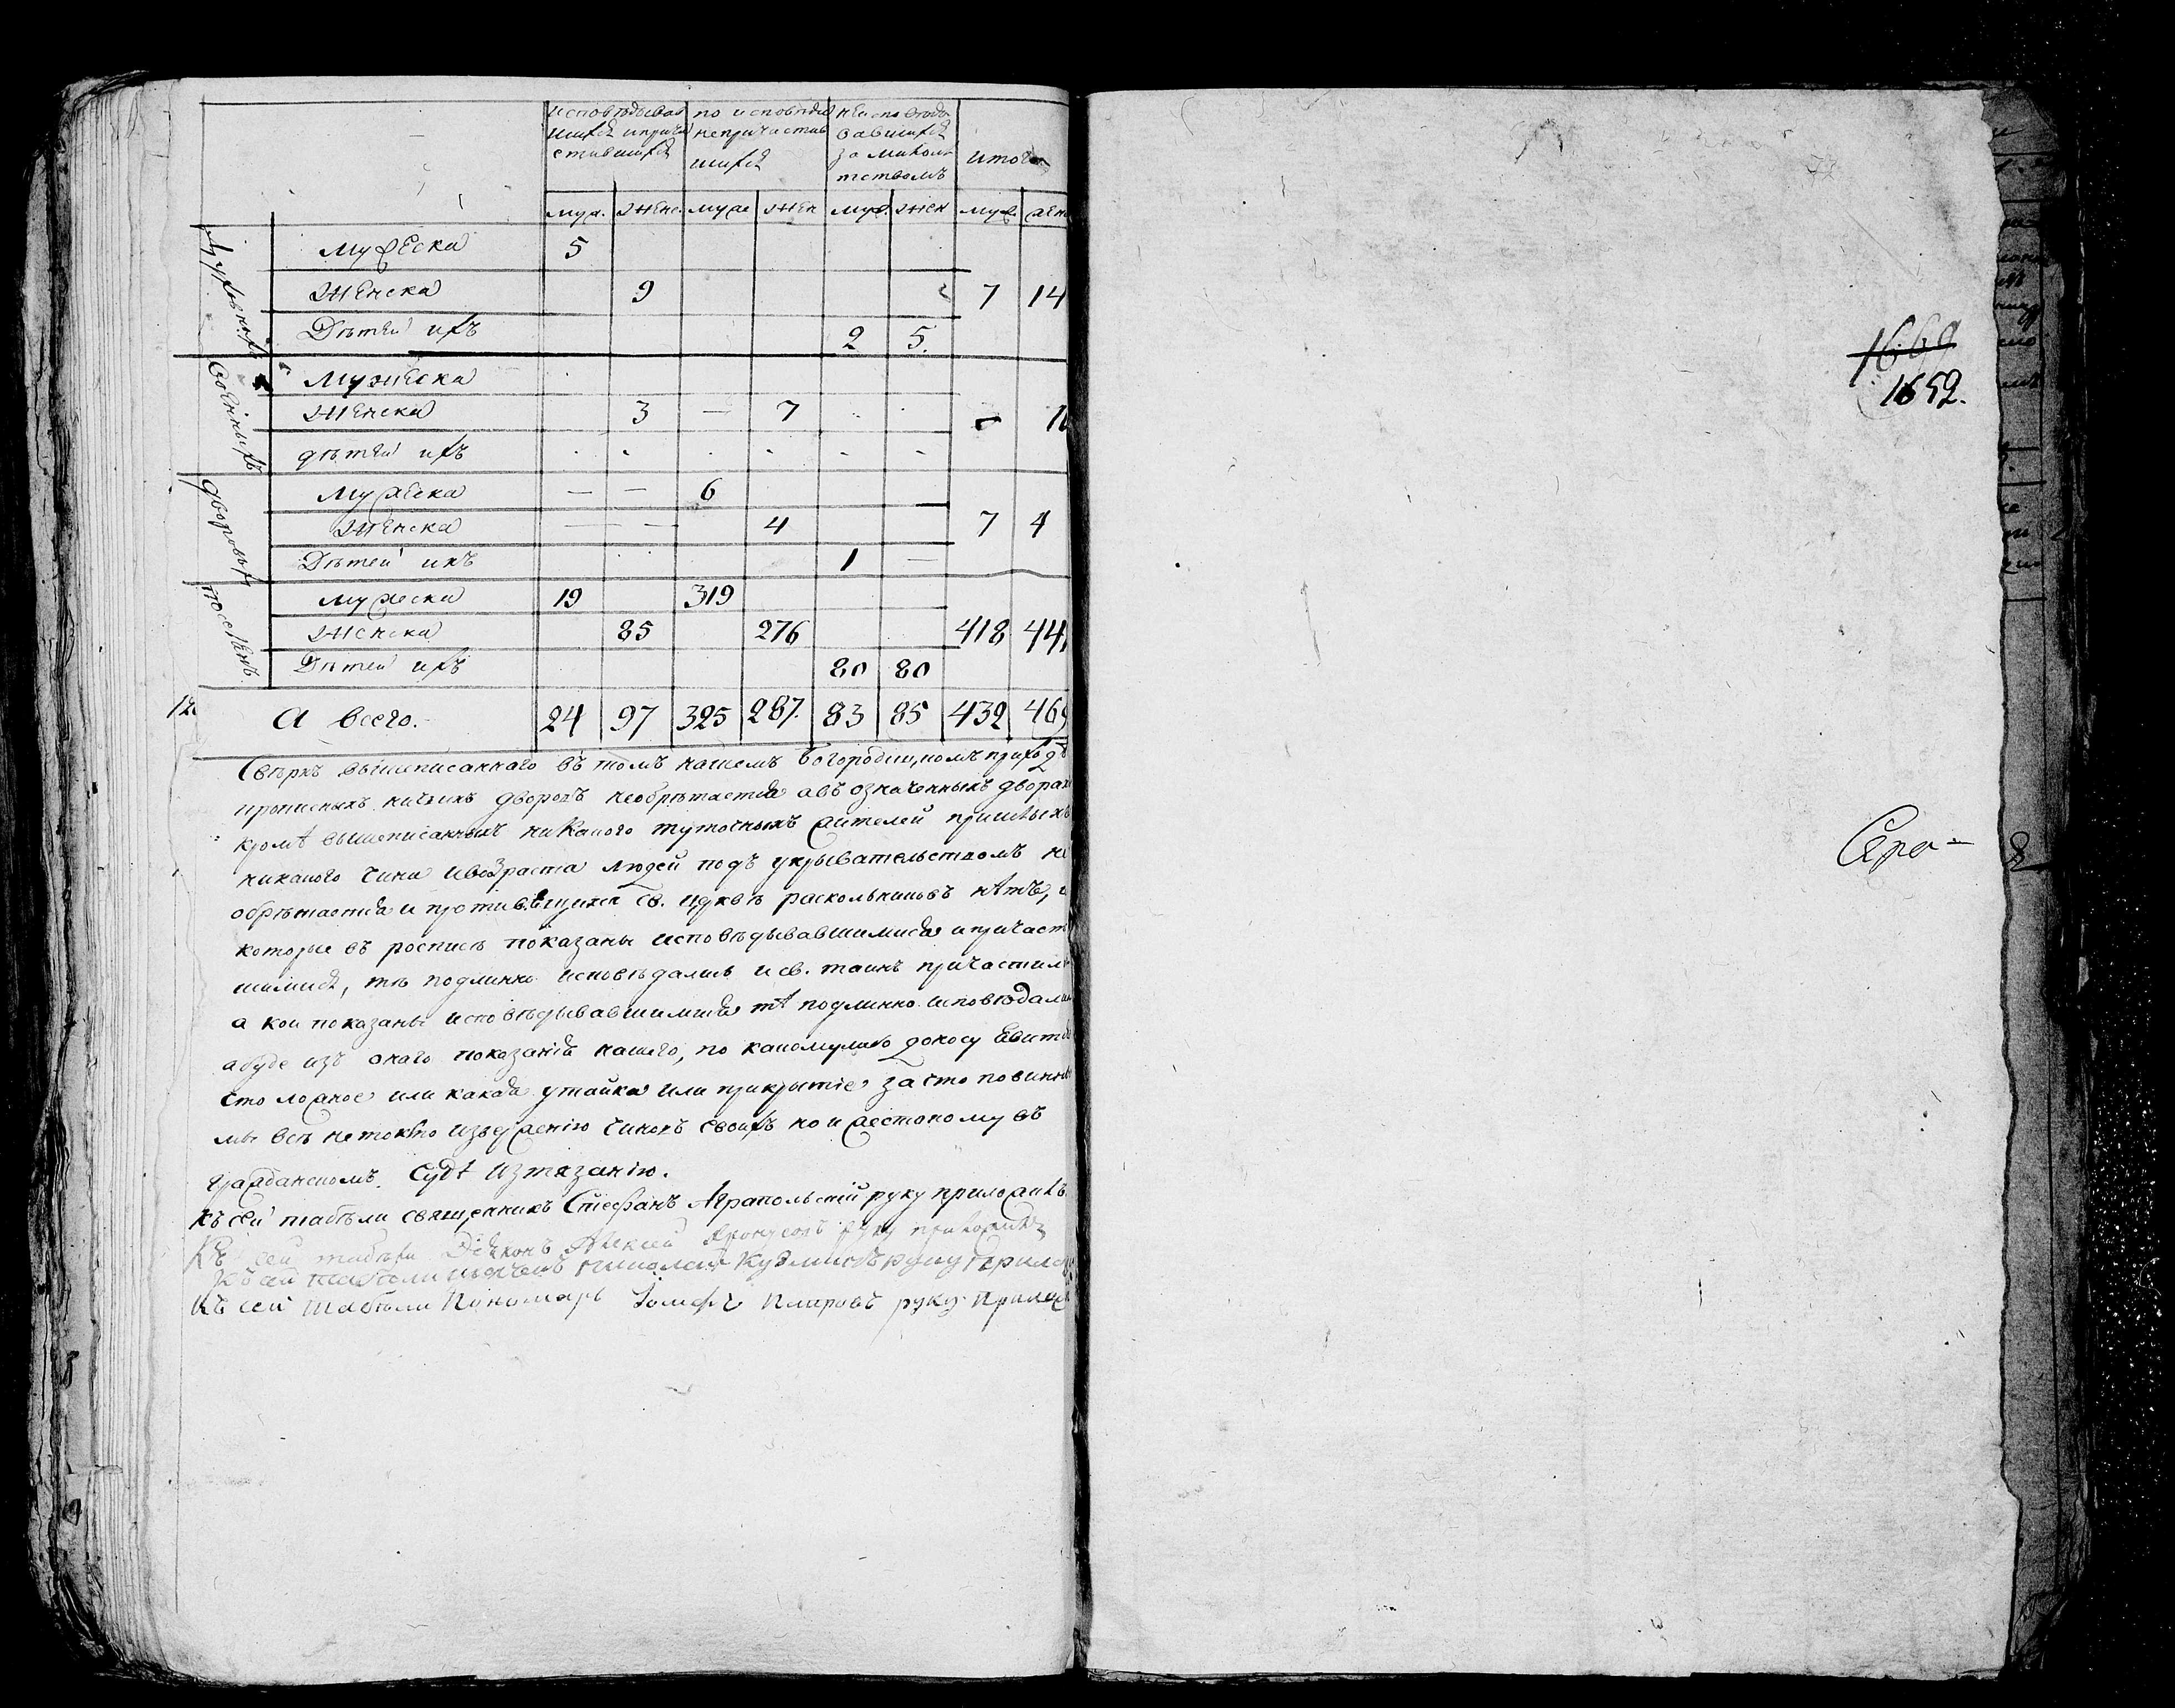 исповѣдывав по исповѣди неисповѣдо
шихся иприча непричастив вавшихся
стившихся шихся за малолѣ итого
тствомъ
муж. женс. муже жен муж. жен муж. жен
духовныхъ
мужеска 5
женска 9 7 14
Дѣтей ихъ 2 5.
военныхъ
мужеска
женска 3 — 7 -
дѣтей ихъ - - - - - -
дворовыхъ
мужеска — — 6
женска — — 4 7 4
Дѣтей ихъ 1 —
поселянъ
мужеска 19 319
женска 85 276 418 44
Дѣтей ихъ 80 80
А всего. 24 97 325 287. 83 85 432 46
Сверхъ вышеписаннаго въ томъ нашемъ Богородицкомъ приходѣ
прописныхъ ничьихъ дворовъ необрѣтается авъ означенныхъ дворах
кромѣ вышеписанныхъ никакого тутошныхъ жителей пришлыхъ
никакого чина ивозраста людей подъ укрывательствомъ не
обрѣтается и противящихся св. церквѣ раскольниковъ нѣтъ, и
которые въ росписѣ показаны исповѣдывавшимися ипричасти
шимися, тѣ подлинно исповѣдались и св. таинъ причастил
а кои показаны исповѣдывавшимися тѣ подлинно исповѣдали
абуде изъ онаго показанія нашего, по какомулибо доносу явитс
что ложное или какая утайка или прикрытіе, зачто повинн
мы всѣ нетокмо изверженію чиновъ своихъ но и жестокому въ
гражданскомъ судѣ изтязанію.
Къ сей табѣли священникъ Стефанъ Аграпольскій руку приложилъ.
Къ сей табѣли Діяконъ Алексей руку приложилъ
Къ сей табѣли Николай Кузминъ руку прилож
Къ сей табѣли Пономарь руку прилож
1669
1652.
Серо-